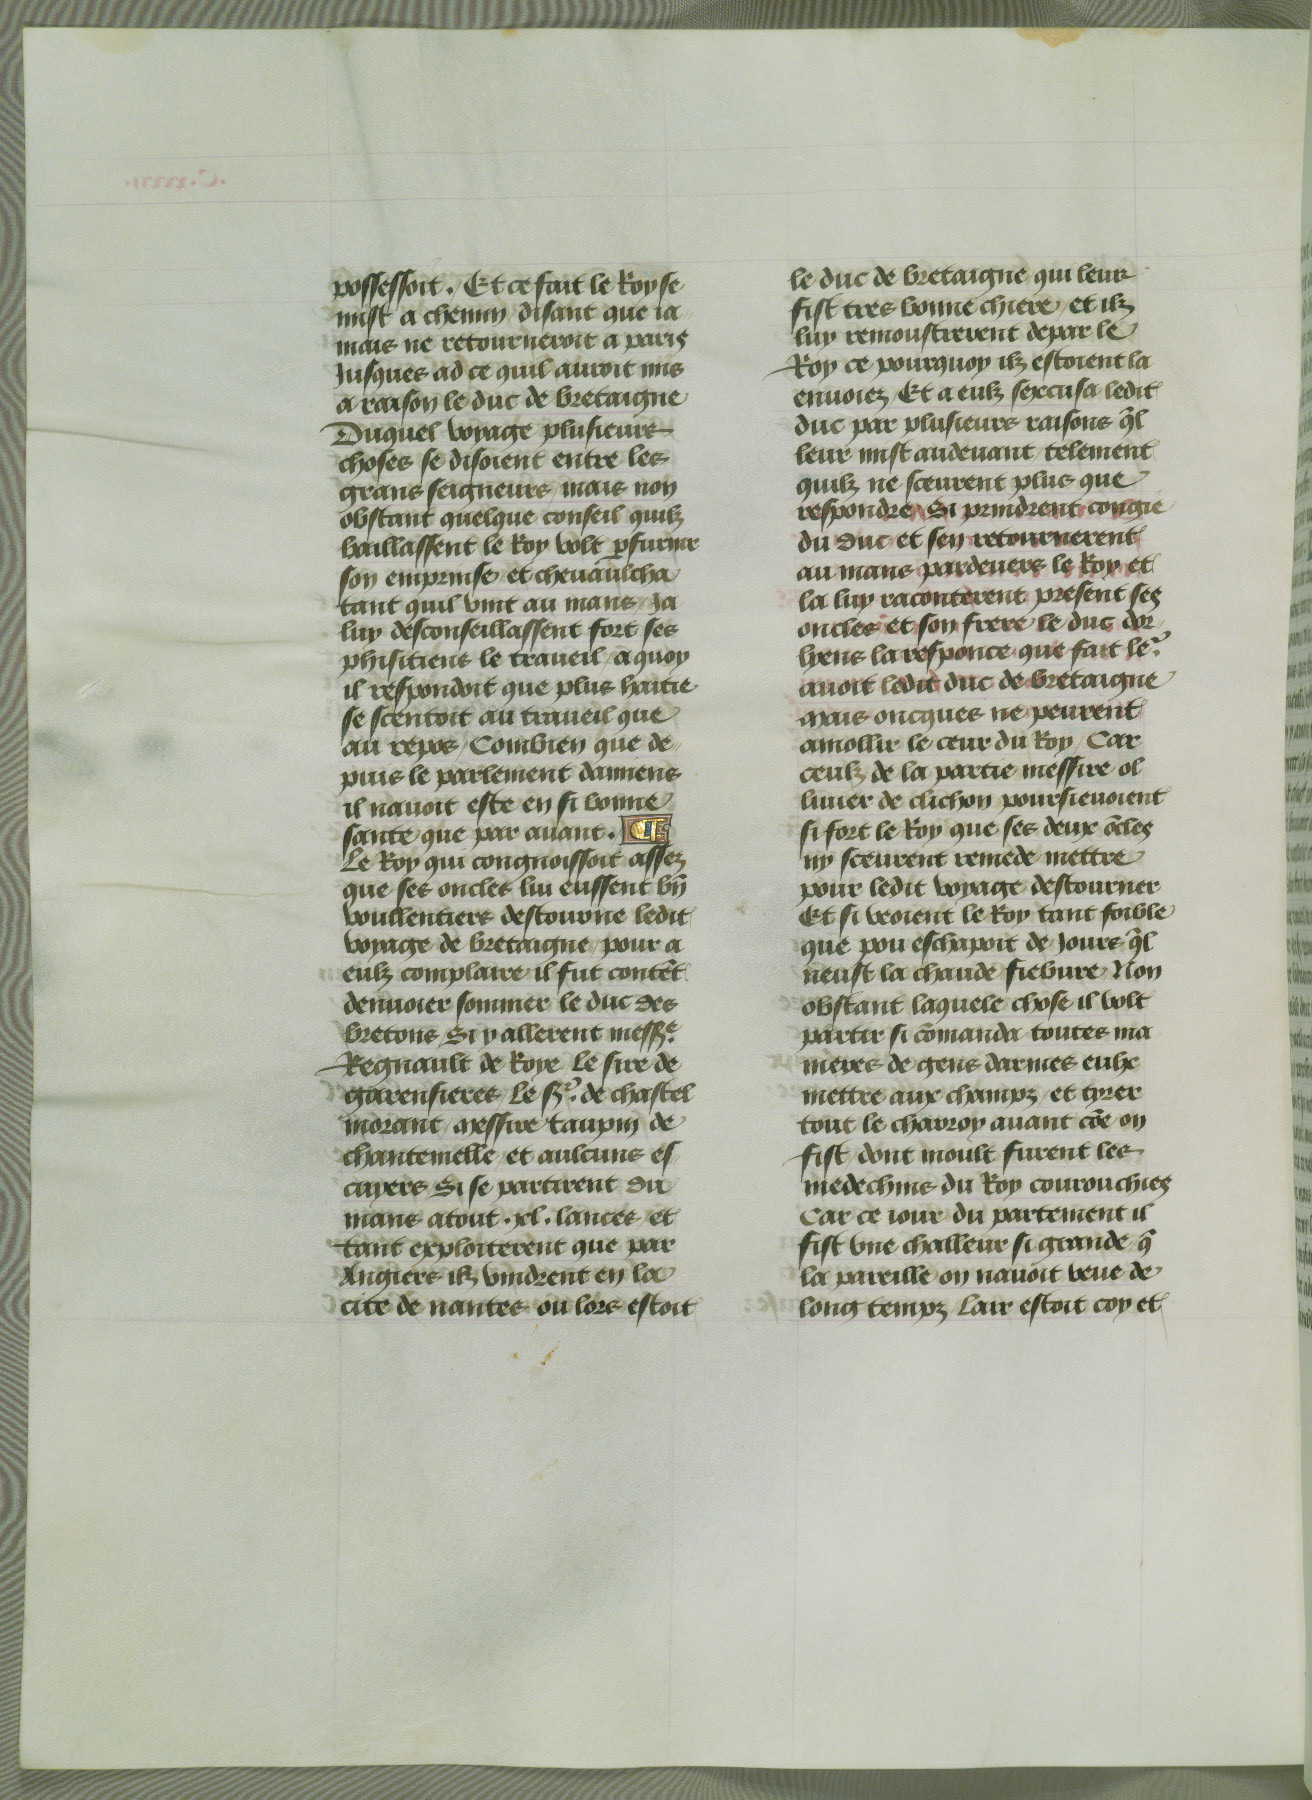 possessoit. Et ce fait le Roy se
mist a chemin / disant que ia
mais ne retourneroit a paris
Jusques ad ce quil auroit mis
a raison le duc de bretaigne
Duquel voyage plusieurs
choses se disoient entre les
grans seigneurs / mais non
obstant quelque conseil quilz
baillassent le Roy volt ꝑfurnir
son emprinse / et cheuaulcha
tant quil vint au mans / Ja
luy desconseillassent fort ses
phisitiens le traueil / a quoy
il respondoit que plus haitie
se scentoit au traueil que
au repos / Combien que de
puis le parlement damiens
il nauoit este en si bonne
sante que par auant. ¶
Le Roy qui congnoissoit assez
que ses oncles lui eussent bn̄
voullentiers destourne ledit
voyage de bretaigne / pour a
eulz complaire il fut contēt
denuoier sommer le duc des
bretons / Si y allerent messe.
Regnault de Roye le sire de
garensieres / Le sr. de chastel
morant / messire taupin de
chantemelle / et aulcuns es
cuyers / Si se partirent du
mans atout .xl. lances / et
tant exploiterent que par
Angiers ilz vindrent en la
cite de nantes ou lors estoit
le duc de bretaigne qui leur
fist tres bonne chiere / et ilz
luy remoustrerent depar le
Roy ce pourquoy ilz estoient la
enuoiez / Et a eulz sexcusa ledit
duc par plusieurs raisons q̄l
leur mist audeuant telement
quilz ne sceurent plus que
respondre / Si prindrent congie
du duc et sen retournerent
au mans pardeuers le Roy et
la luy raconterent present ses
oncles et son frere le duc dor
lyens la responce que fait le.
auoit ledit duc de bretaigne
mais oncques ne peurent
amollir le ceur du Roy / Car
ceulz de la partie messire ol
liuier de clichon poursieuoient
si fort le Roy que ses deux ōcles
ny sceurent remede mettre
pour ledit voyage destourner
Et si veoient le Roy tant foible
que pou eschapoit de Jours q̄l
neust la chaude fiebure / Non
obstant laquele chose il volt
partir si cōmanda toutes ma
nieres de gens darmes eulx
mettre aux champz / et tyrer
tout le charroy auant cōe on
fist / dont moult furent les
medechins du Roy courouchies
Car ce iour du partement il
fist vne challeur si grande q̄
la pareille on nauoit veue de
long tempz / Lair estoit coy et